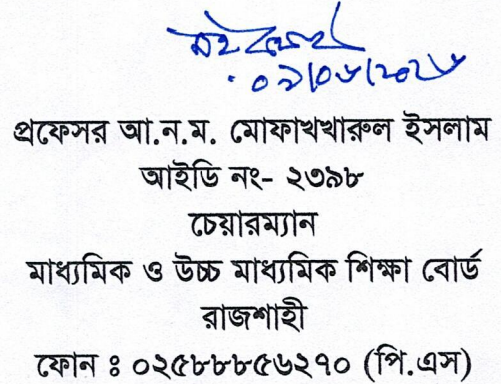 ০৯/০৬/২০২৬
প্রফেসর আ.ন.ম. মোফাখখারুল ইসলাম
আইডি নং- ২৩৯৮
চেয়ারম্যান
মাধ্যমিক ও উচ্চ মাধ্যমিক শিক্ষা বোর্ড
রাজশাহী
ফোন ঃ ০২৫৮৮৮৫৬২৭০ (পি.এস)